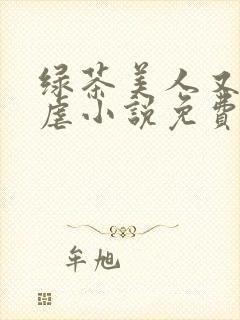 绿茶美人又
虐小說免費
牟旭